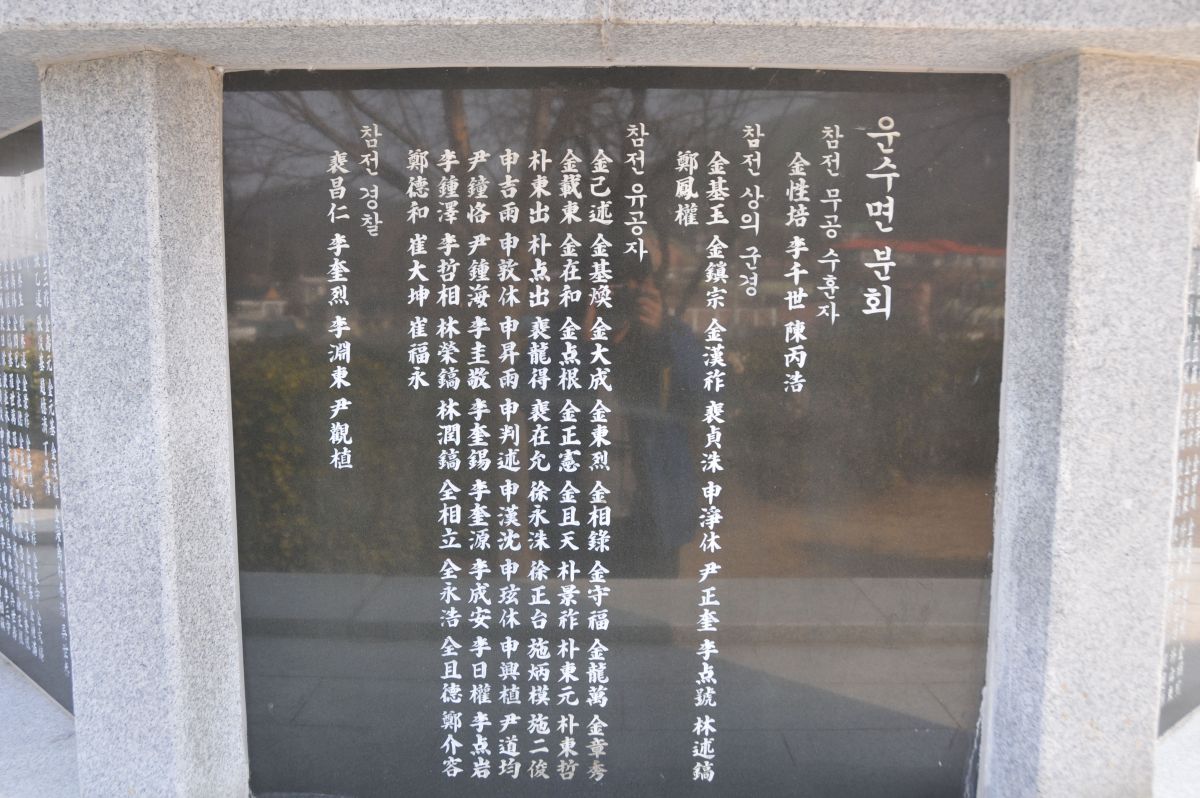 운수면 분회
참전 무공 수훈자
金性培 李千世 陳丙浩
참전 상의 군경
金基玉 金鎭宗 金漢祚 裵貞洙 申淨休 尹正奎 李点號 林述鎬
鄭鳳權
참전 유공자
金己述 金基煥 金大成 金東烈 金相錄 金守福 金龍萬 金章秀
金載東 金在和 金点根 金正憲 金且天 朴景祚 朴東元 朴東哲
朴東出 朴点出 裵龍得 裵在允 徐永洙 徐正台 施炳模 施二俊
申吉雨 申敦休 申昇雨 申判述 申漢沈 申玹休 申興植 尹道均
尹鐘恪 尹鍾海 李圭敬 李奎錫 李奎源 李成安 李日權 李点岩
李鍾澤 李哲相 林榮鎬 林潤鎬 全相立 全永浩 全且德 鄭介容
鄭德和 崔大坤 崔福永
참전 경찰
裵昌仁 李奎烈 李淵東 尹觀植